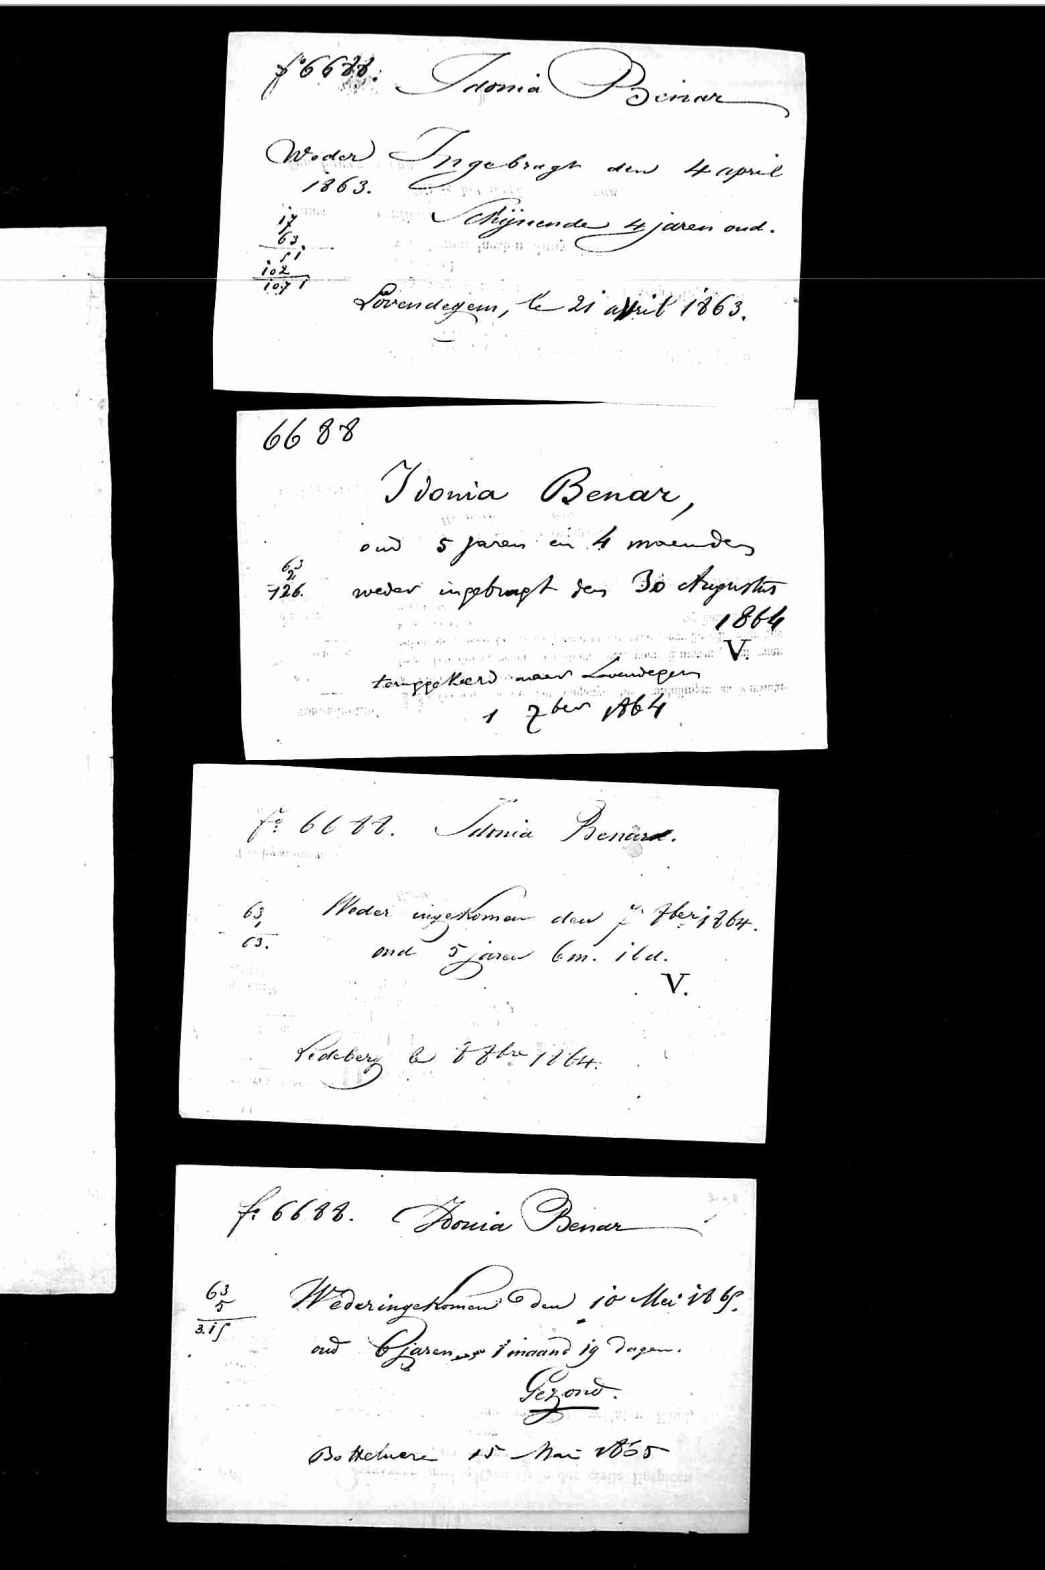 fo 6688. Idonia Benar
Weder Ingebragt den 4 april
1863.
Schijnende 4 jaren oud.
17
63
51
102
1071
Lovendegem, le 21 avril 1863.
6688
Idonia Benar,
oud 5 jaren en 4 maenden
63
2
126.
weder ingebragt den 30 Augustus
1864
V.
teruggekeerd naer Lovendegem
1 7ber 1864
fo 6688. Idonia Benar.
63
1
63.
Weder ingekomen den 7ber 1864.
oud 5 jaren 6 m. 16 d.
V.
Ledeberg le 8 8bre 1864.
fo 6688. Idonia Benar
63
5
3.15
Wederingekomen den 10 Mei 1865.
oud 6 jaren 1 maand 19 dagen.
Gezond.
Bottelaere 15 Mai 1865